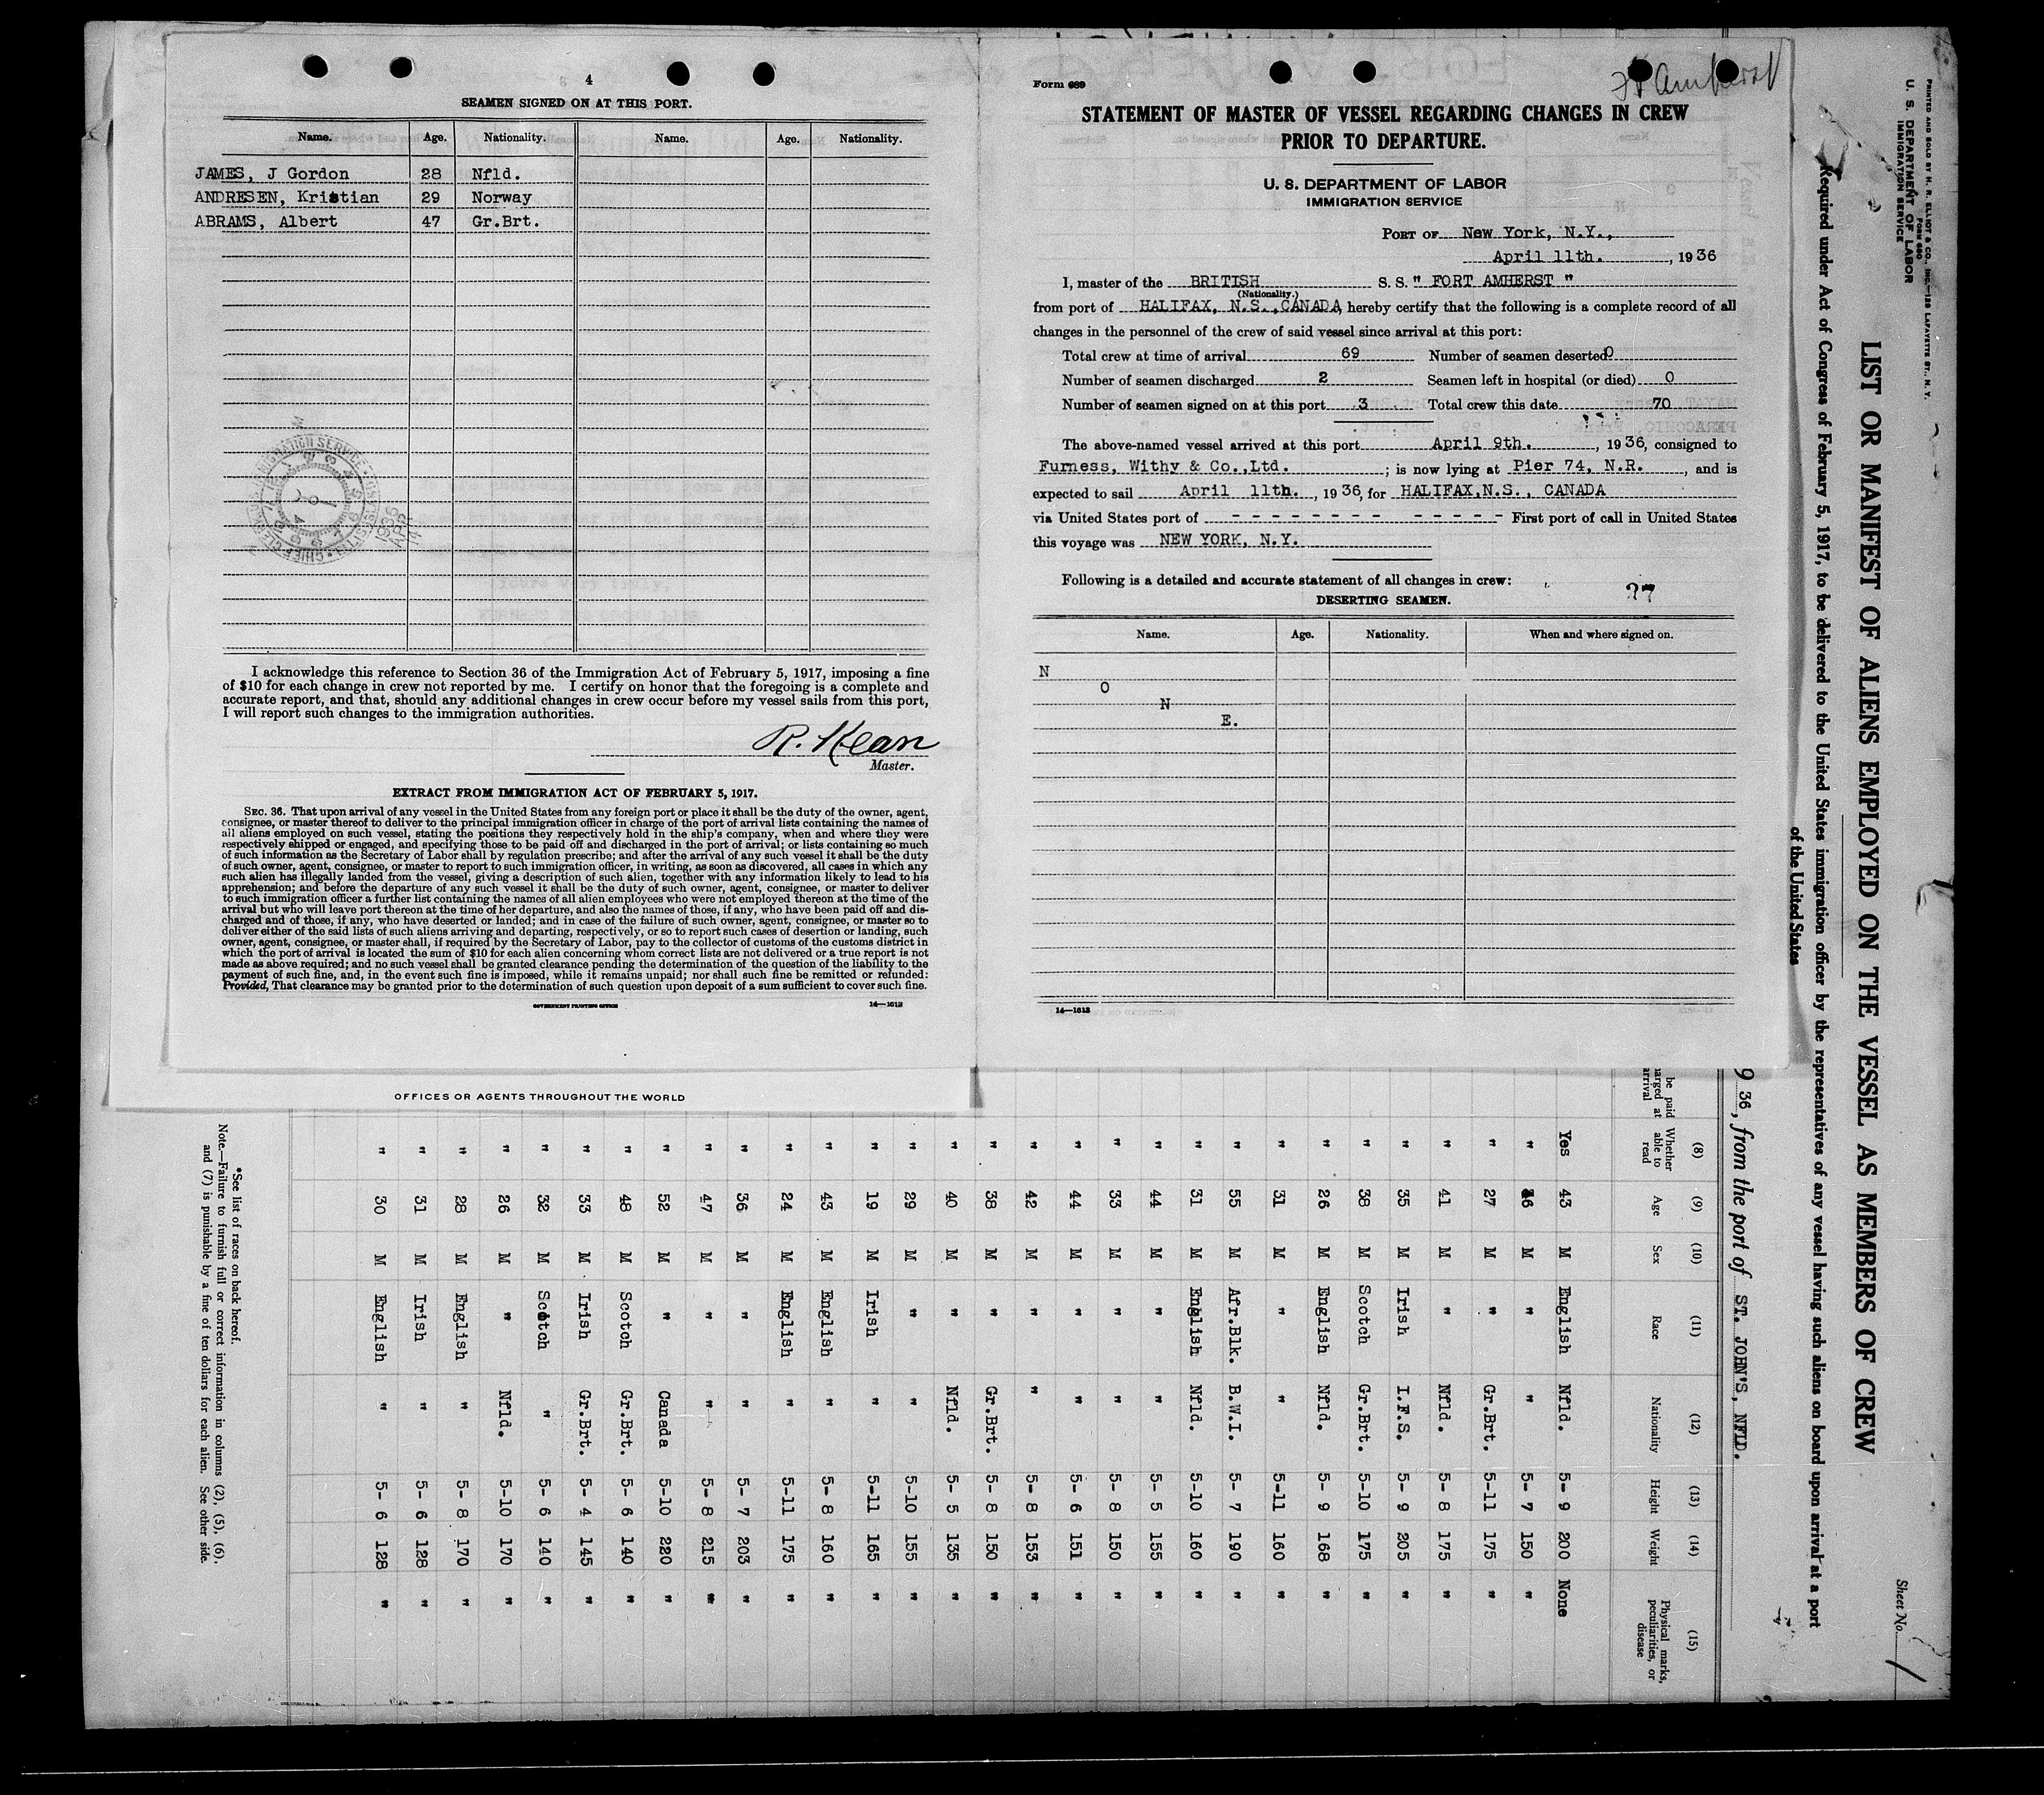 4
SEAMEN SIGNED ON AT THIS PORT.
Name. Age. Nationality. Name. Age. Nationality.
JAMES, J Gordon 28 Nfld.
ANDRESEN, Kristian 29 Norway
ABRAMS, Albert 47 Gr.Brt.
I acknowledge this reference to Section 36 of the Immigration Act of February 5, 1917, imposing a fine
of $10 for each change in crew not reported by me. I certify on honor that the foregoing is a complete and
accurate report, and that, should any additional changes in crew occur before my vessel sails from this port,
I will report such changes to the immigration authorities.
R. Kean
Master.
EXTRACT FROM IMMIGRATION ACT OF FEBRUARY 5, 1917.
SEC. 36. That upon arrival of any vessel in the United States from any foreign port or place it shall be the duty of the owner, agent,
consignee, or master thereof to deliver to the principal immigration officer in charge of the port of arrival lists containing the names of
all aliens employed on such vessel, stating the positions they respectively hold in the ship's company, when and where they were
respectively shipped or engaged, and specifying those to be paid off and discharged in the port of arrival; or lists containing so much
of such information as the Secretary of Labor shall by regulation prescribe; and after the arrival of any such vessel it shall be the duty
of such owner, agent, consignee, or master to report to such immigration officer, in writing, as soon as discovered, all cases in which any
such alien has illegally landed from the vessel, giving a description of such alien, together with any information likely to lead to his
apprehension; and before the departure of any such vessel it shall be the duty of such owner, agent, consignee, or master to deliver
to such immigration officer a further list containing the names of all alien employees who were not employed thereon at the time of the
arrival but who will leave port thereon at the time of her departure, and also the names of those, if any, who have been paid off and dis-
charged and of those, if any, who have deserted or landed; and in case of the failure of such owner, agent, consignee, or master so to
deliver either of the said lists of such aliens arriving and departing, respectively, or so to report such cases of desertion or landing, such
owner, agent, consignee, or master shall, if required by the Secretary of Labor, pay to the collector of customs of the customs district in
which the port of arrival is located the sum of $10 for each alien concerning whom correct lists are not delivered or a true report is not
made as above required; and no such vessel shall be granted clearance pending the determination of the question of the liability to the
payment of such fine, and, in the event such fine is imposed, while it remains unpaid; nor shall such fine be remitted or refunded:
Provided, That clearance may be granted prior to the determination of such question upon deposit of a sum sufficient to cover such fine.
GOVERNMENT PRINTING OFFICE 14—1613
OFFICES OR AGENTS THROUGHOUT THE WORLD
Form 689
Ft Amherst
STATEMENT OF MASTER OF VESSEL REGARDING CHANGES IN CREW
PRIOR TO DEPARTURE.
U. S. DEPARTMENT OF LABOR
IMMIGRATION SERVICE
PORT OF New York, N.Y.,
April 11th. , 1936
I, master of the BRITISH S. S. " FORT AMHERST "
(Nationality.)
from port of HALIFAX, N.S.,CANADA, hereby certify that the following is a complete record of all
changes in the personnel of the crew of said vessel since arrival at this port:
Total crew at time of arrival 69 Number of seamen deserted 0
Number of seamen discharged 2 Seamen left in hospital (or died) 0
Number of seamen signed on at this port 3 Total crew this date 70
The above-named vessel arrived at this port April 9th. , 1936, consigned to
Furness, Withy & Co.,Ltd. ; is now lying at Pier 74, N.R. , and is
expected to sail April 11th. , 1936, for HALIFAX,N.S., CANADA
via United States port of - - - - - - - - - - - - - First port of call in United States
this voyage was NEW YORK, N.Y.
Following is a detailed and accurate statement of all changes in crew:
27
DESERTING SEAMEN.
Name. Age. Nationality. When and where signed on.
N
O
N
E.
14—1613
PRINTED AND SOLD BY H. R. ELLIOT & CO., INC.—129 LAFAYETTE ST., N. Y.
FORM 680
U. S. DEPARTMENT OF LABOR
IMMIGRATION SERVICE
Sheet No. 1
LIST OR MANIFEST OF ALIENS EMPLOYED ON THE VESSEL AS MEMBERS OF CREW
Required under Act of Congress of February 5, 1917, to be delivered to the United States immigration officer by the representatives of any vessel having such aliens on board upon arrival at a port
of the United States
9 36, from the port of ST. JOHN'S, NFLD.
(8) (9) (10) (11) (12) (13) (14) (15)
be paid
arged at
arrival
Whether able to read Age Sex Race Nationality Height Weight Physical marks, peculiarities, or disease
Yes 43 M English Nfld. 5- 9 200 None
" 36 M " " 5- 7 150 "
" 27 M " Gr.Brt. 5-11 175 "
" 41 M " Nfld. 5- 8 175 "
" 35 M Irish I.F.S. 5- 9 205 "
" 38 M Scotch Gr.Brt. 5-10 175 "
" 26 M English Nfld. 5- 9 168 "
" 31 M " " 5-11 160 "
" 55 M Afr.Blk. B.W.I. 5- 7 190 "
" 31 M English Nfld. 5-10 160 "
" 44 M " " 5- 5 155 "
" 33 M " " 5- 8 150 "
" 44 M " " 5- 6 151 "
" 42 M " " 5- 8 153 "
" 38 M " Gr.Brt. 5- 8 150 "
" 40 M " Nfld. 5- 5 135 "
" 29 M " " 5-10 155 "
" 19 M Irish " 5-11 165 "
" 43 M English " 5- 8 160 "
" 24 M English " 5-11 175 "
" 36 M " " 5- 7 203 "
" 47 M " " 5- 8 215 "
" 52 M " Canada 5-10 220 "
" 48 M Scotch Gr.Brt. 5- 6 140 "
" 33 M Irish Gr.Brt. 5- 4 145 "
" 32 M Scotch " 5- 6 140 "
" 26 M " Nfld. 5-10 170 "
" 28 M English " 5- 8 170 "
" 31 M Irish " 5- 6 128 "
" 30 M English " 5- 6 128 "
*See list of races on back hereof.
Note.—Failure to furnish full or correct information in columns (2), (5), (6),
and (7) is punishable by a fine of ten dollars for each alien. See other side.